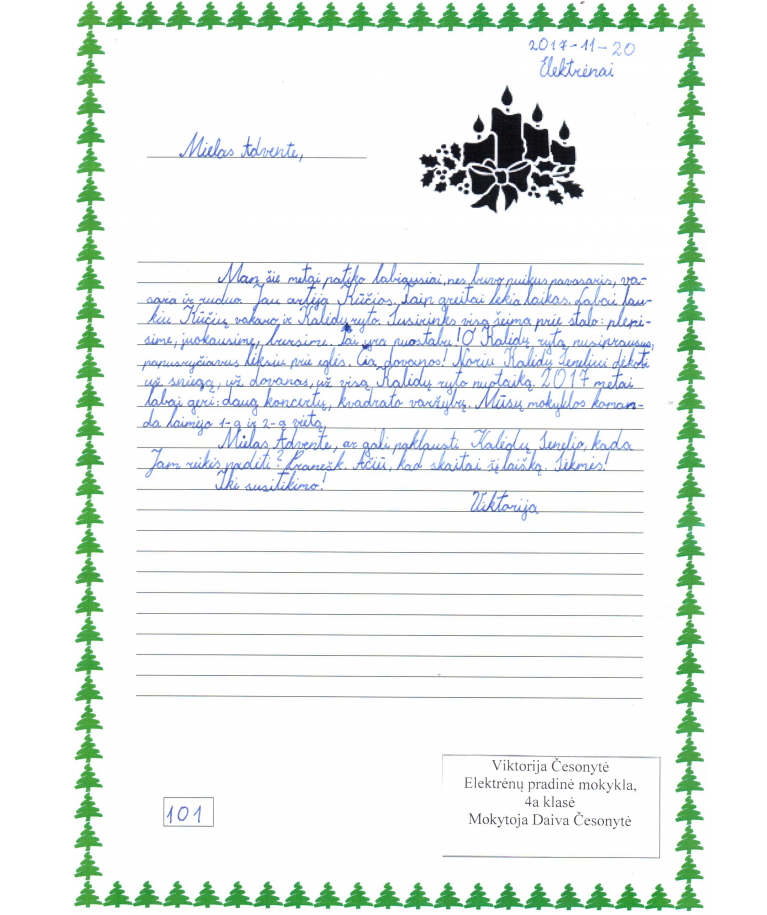 2017-11-20
Elektrėnai
Mielas Advente,
Man šie metai patiko labiausiai, nes buvo puikus pavasaris, va-
sara ir ruduo. Jau artėja Kūčios. Taip greitai lekia laikas. Labai lau-
kiu Kūčių vakaro ir Kalėdų ryto. Susirinks visa šeima prie stalo: plepė-
sime, juokausime, bursime. Tai yra nuostabu! O Kalėdų rytą nusiprausus,
papusryčiavus lėksiu prie eglės. Čia dovanos! Noriu Kalėdų Seneliui dėkoti
už sniegą, už dovanas, už visą Kalėdų ryto nuotaiką. 2017 metai
labai geri: daug koncertų, kvadrato varžybų. Mūsų mokyklos koman-
da laimėjo 1-ą ir 2-ą vietą.
Mielas Advente, ar gali paklausti Kalėdų Senelio, kada
Jam reikės padėti? Pranešk. Ačiū, kad skaitai šį laišką. Sėkmės!
Iki susitikimo!
Viktorija
Viktorija Česonytė
Elektrėnų pradinė mokykla,
4a klasė
Mokytoja Daiva Česonytė
101